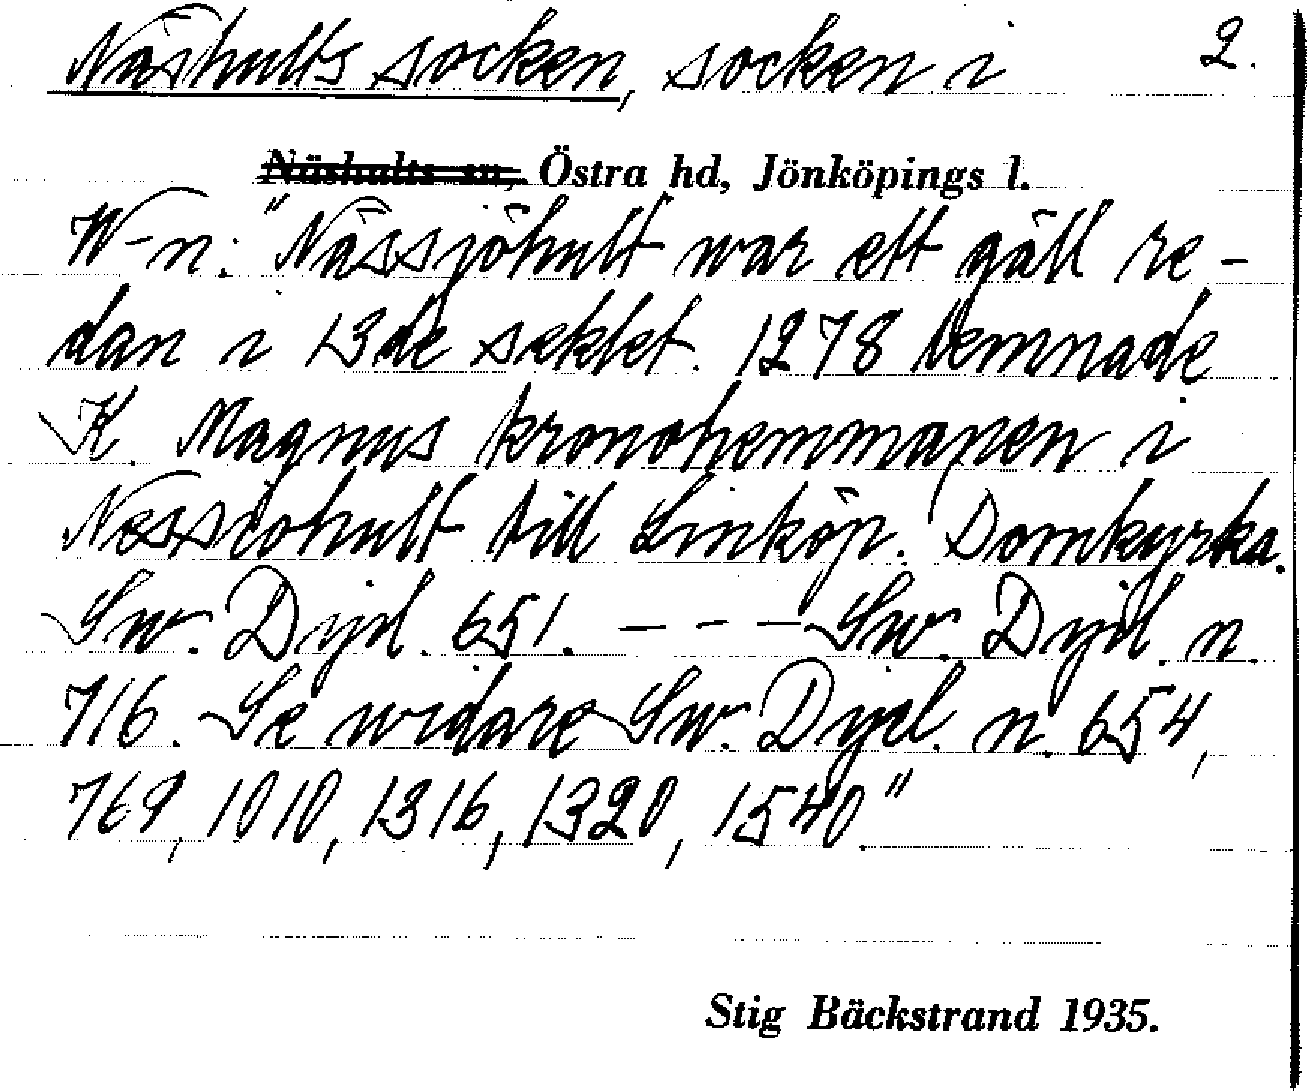 Näshults socken, socken i 2.
Näshults sn, Östra hd, Jönköpings l.
W-n: "Nässjöhult war ett gäll re-
dan i 13de seklet. 1278 lemnade
K. Magnus kronohemmanen i
Nessiohult till Linköp. Domkyrka.
Sw. Dipl. 651. - - - Sw. Dipl. n.
716. Se widare Sw. Dipl. n. 654,
769, 1010, 1316, 1320, 1540"
Stig Bäckstrand 1935.